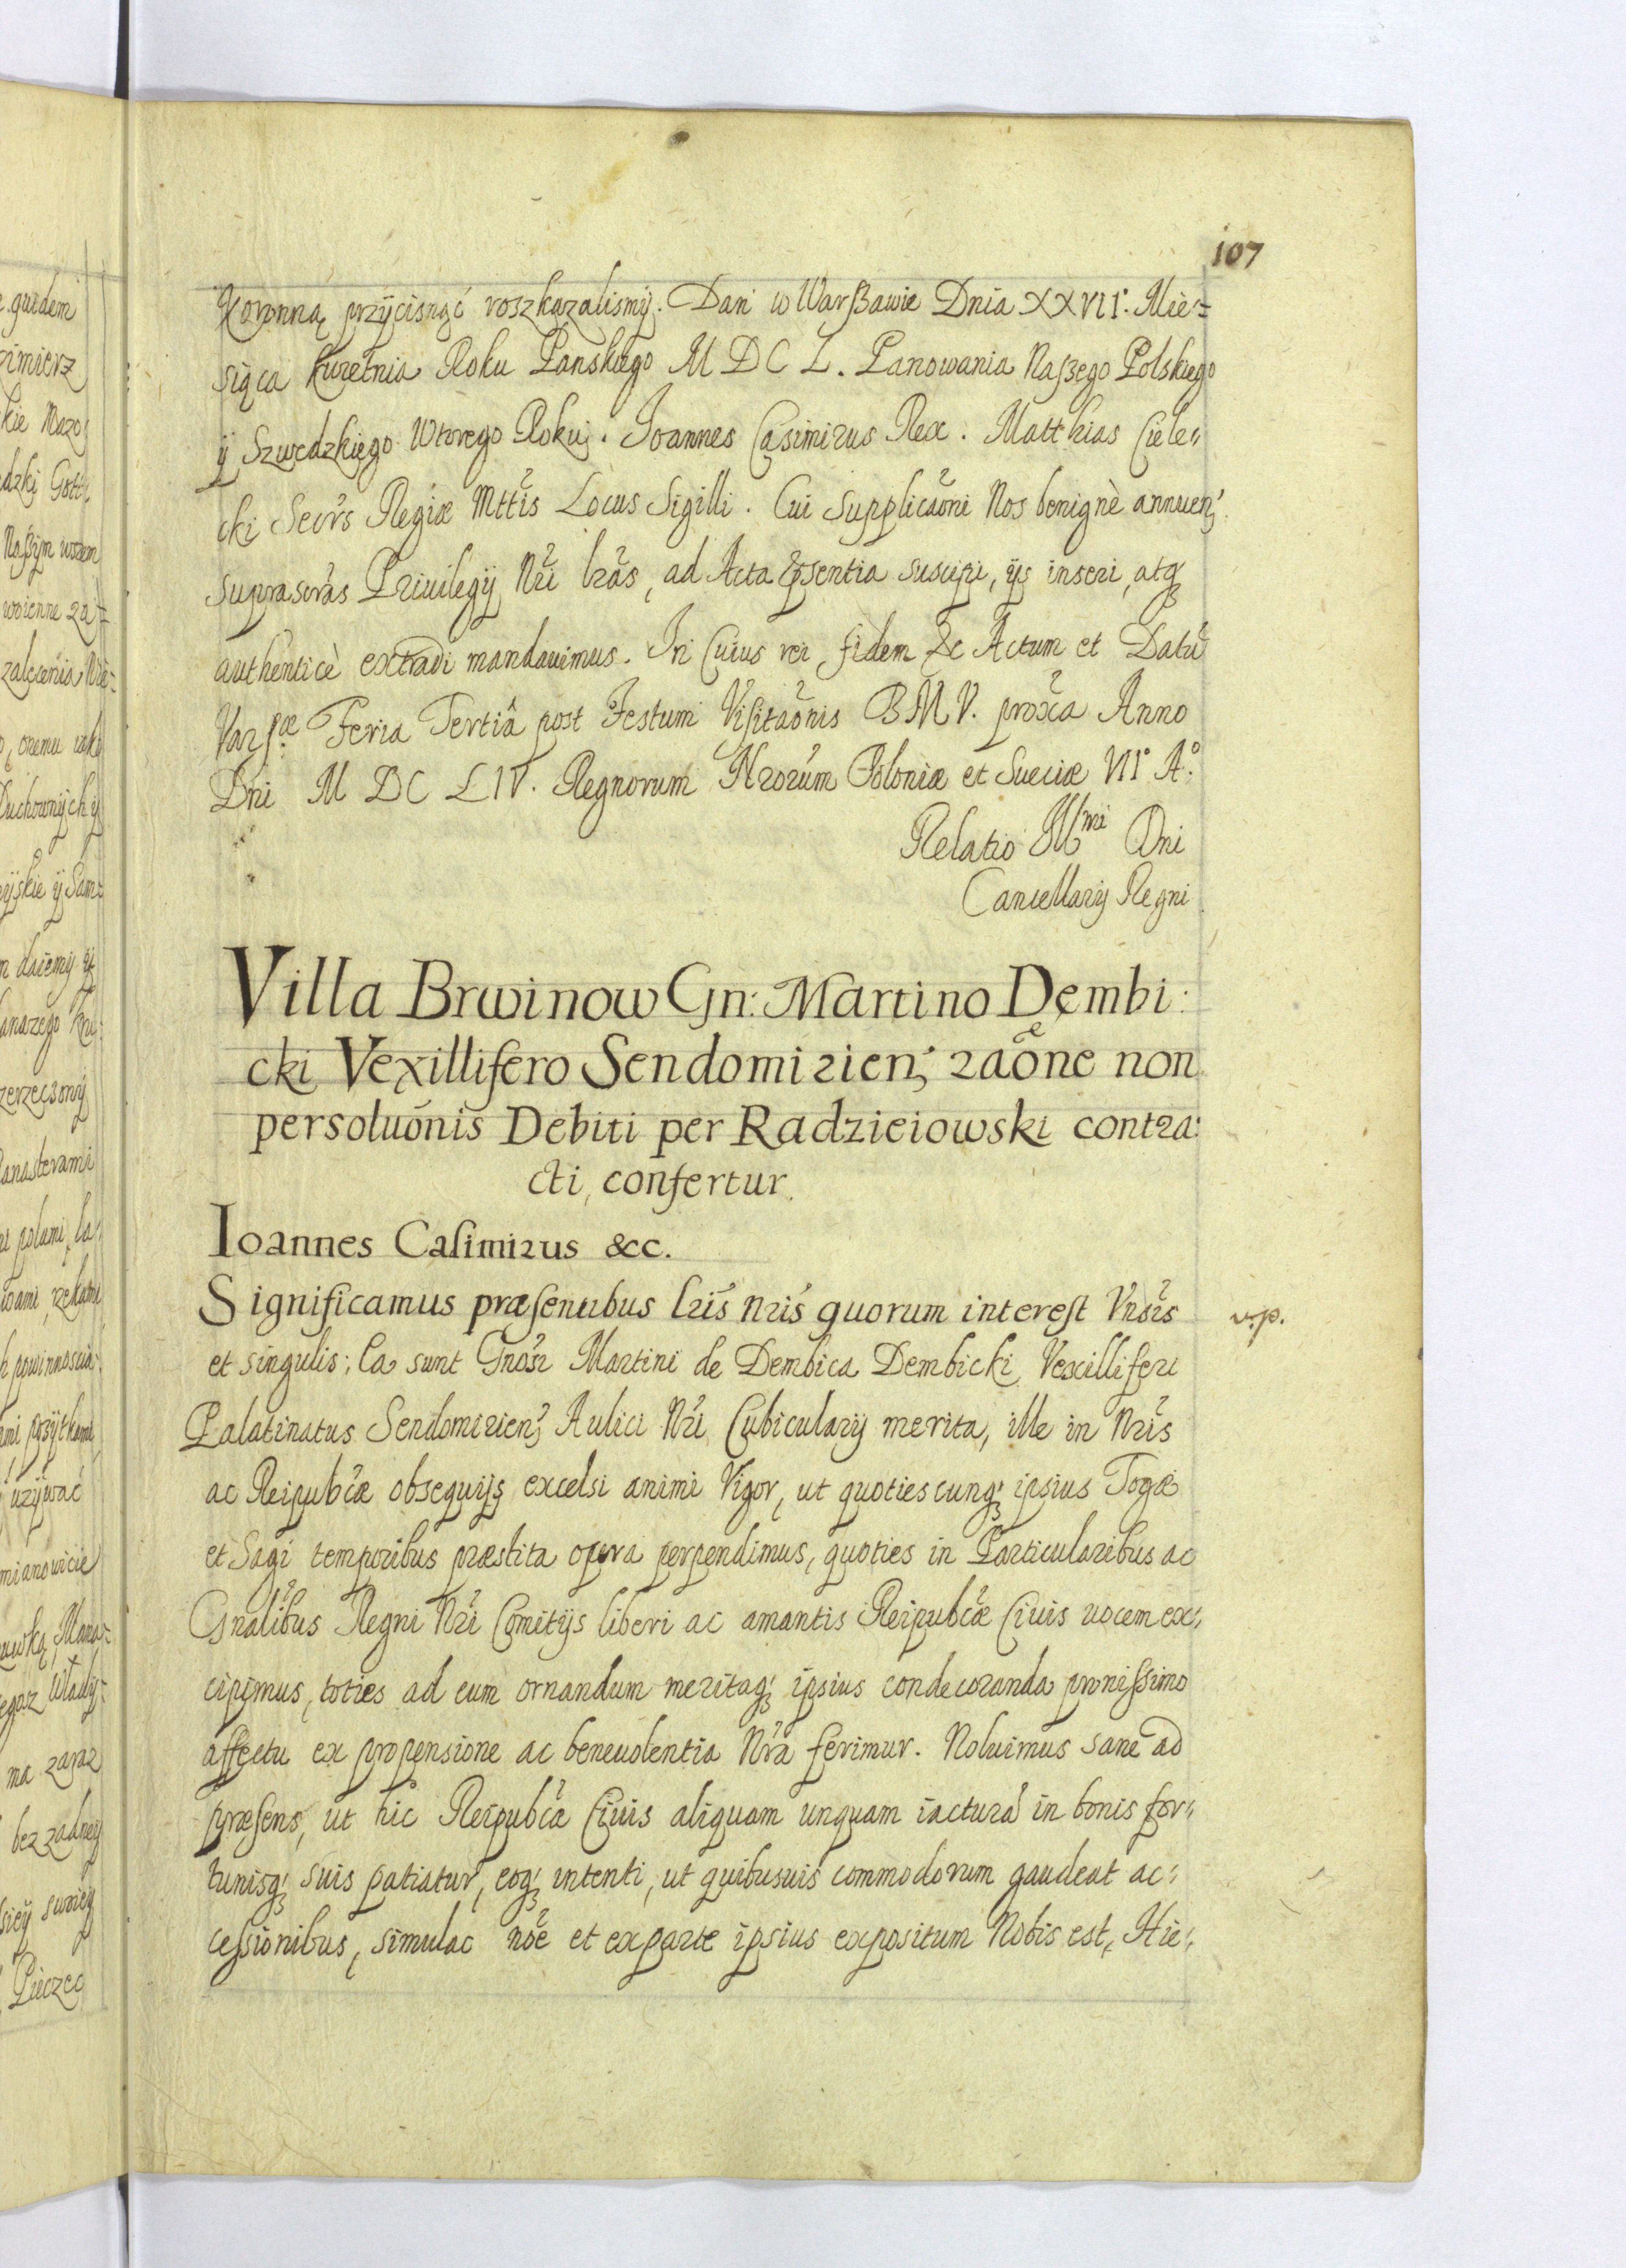 107
Koronną przÿcisnąć roszkazalismÿ. Dan w Warßawie Dnia XXVII. Mie=
siąca kwietnia Roku Panskiego M DC L. Panowania Naszego Polskiego
ÿ Szwedzkiego Wtorego Roku. Joannes Casimirus Rex. Matthias Ciele"
cki Secr̃s Regiæ Mttĩs Locus Sigilli. Cui Supplicãoni Nos benignè annuen:
suprascrãs Priuilegij Nrĩ lrãs, ad Acta p̃sentia suscipi, ijs inseri, atq3
authenticè extradi mandauimus. In Cuius rei fidem &c Actum et Datũ
Vars:æ Feria Tertiâ post Festum Visitãonis BMV. proxã Anno
Dni M DC LIV. Regnorum Nrorũm Poloniæ et Sueciæ VII° A:°
Relatio Illmi Dni
Cancellarij Regni
Villa Brwinow Gn: Martino Dembi:
cki Vexillifero Sendomirien; raõne non
persoluõnis Debiti per Radzieiowski contra:
cti, confertur.
Ioannes Casimirus &c.
Significamus præsentibus lrĩs nrĩs quorum interest Vnsĩs
v.p.
et singulis; Ea sunt Gnõsi Martini de Dembica Dembicki Vexilliferi
Palatinatus Sendomirien; Aulici Nrĩ Cubicularij merita, ille in Nrĩs
ac Reipubcæ obsequijs excelsi animi Vigor, ut quotiescunq3 ipsius Togæ
et Sagi temporibus præstita opera perpendimus, quoties in Particularibus ac
Gnalĩbus Regni Nrĩ Comitijs liberi ac amantis Reipubcæ Ciuis uocem ex:
cipimus, toties ad eum ornandum meritaq3 ipsius condecoranda pronissimo
affectu ex propensione ac beneuolentia Nrã ferimur. Noluimus sane ad
præsens, ut hic Reipubcæ Ciuis aliquam unquam iacturã in bonis for:
tunisq3 suis patiatur, eoq3 intenti, ut quibusuis commodorum gaudeat ac:
cessionibus, simulac nõe et ex parte ipsius expositum Nobis est, Hie: